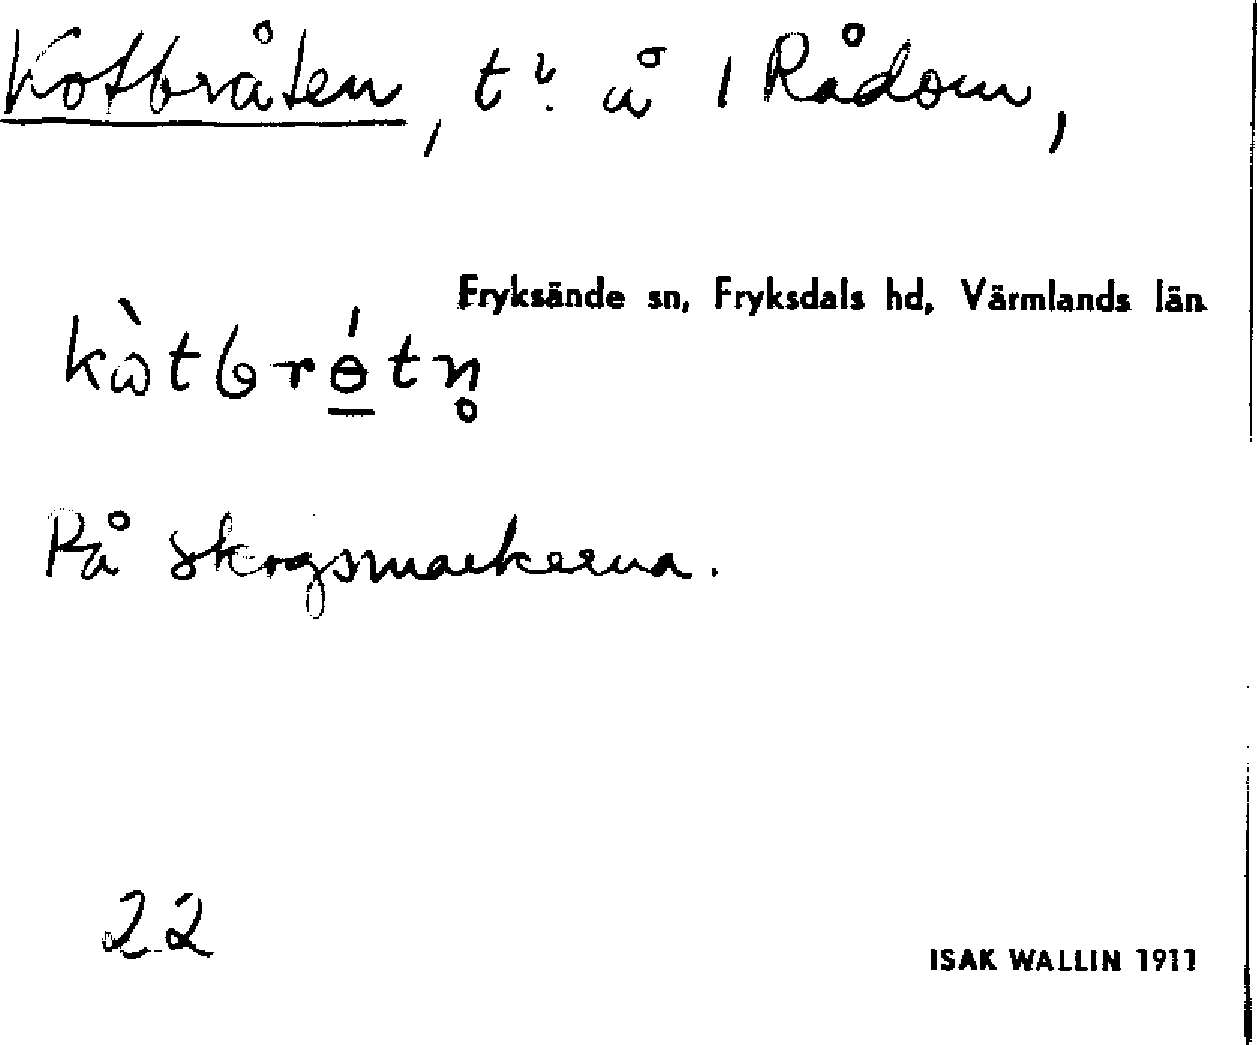 Kotbråten, tr. å 1 Rådom,
Fryksände sn, Fryksdals hd, Värmlands län
kὼtbrɵ́tn̥
På skogsmarkerna.
22
ISAK WALLIN 1911